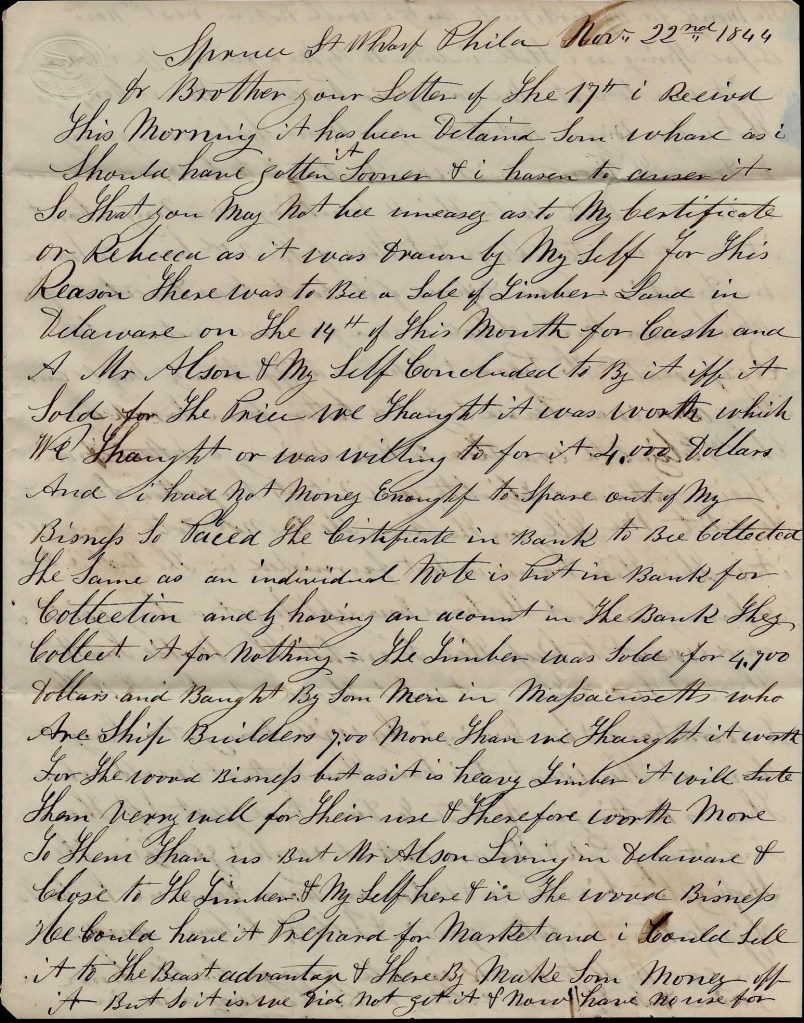 Spruce St Wharf Phila Nov. 22nd 1844
Dr Brother your Letter of The 17th i Receivd
This Morning it has been Detaind Som whare as i
Should have gotten it Sooner & i hasen to anser it
So That you May Not bee uneasey as to My Certificate
or Rebecca as it was Drawn by My Self for This
Reason There was to Bee a Sale of Timber Land in
Delaware on The 14th of This Month for Cash and
A Mr Alson & My Self Concluded to By it iff it
Sold for The Price we Thaught it was worth which
We Thaught or was willing to for it 4,000 Dollars
And i had Not Money Enoughf to Spare out of My
Bisness So Placed The Certificate in Bank to Bee Collected
The Same as an individual Note is Put in Bank for
Collection and by having an acount in The Bank They
Collect it for Nothing = The Timber was Sold for 4,700
Dollars and Baught By Som Men in Massacusetts who
Are Ship Builders 700 More Than we Thaught it worth
For The wood Bisness but as it is heavy Timber it will Sute
Them Verry well for Their use & Therefore worth More
To Them Than us But Mr Alson Living in Delaware &
Close to The Timber & My Self here & in The wood Bisness
He Could have it Prepard for Market and i Could Sell
it to The Beast advantag & There By Make Som Money off
it But So it is we Did Not get it & Now i have no use for